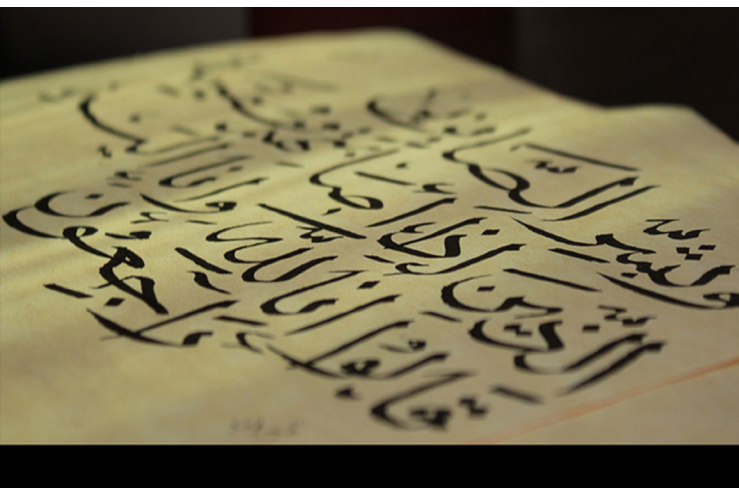 وبشر الصابرين
الذين إذا أصابتهم مصيبة
قالوا إنا لله وإنا إليه راجعون